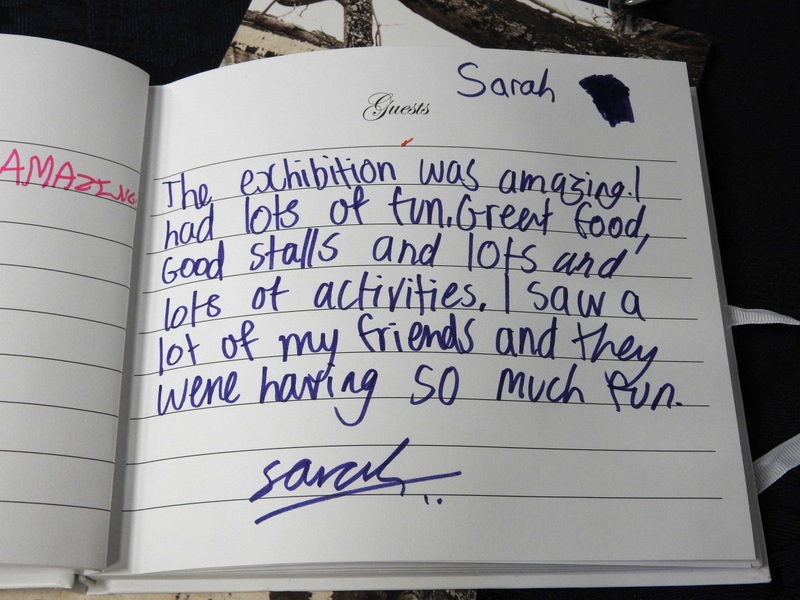 Sarah
Guests
AMAZING
The exhibition was amazing. I
had lots of fun. Great food,
Good stalls and lots and
lots of activities. I saw a
lot of my friends and they
were having so much fun.
sarah